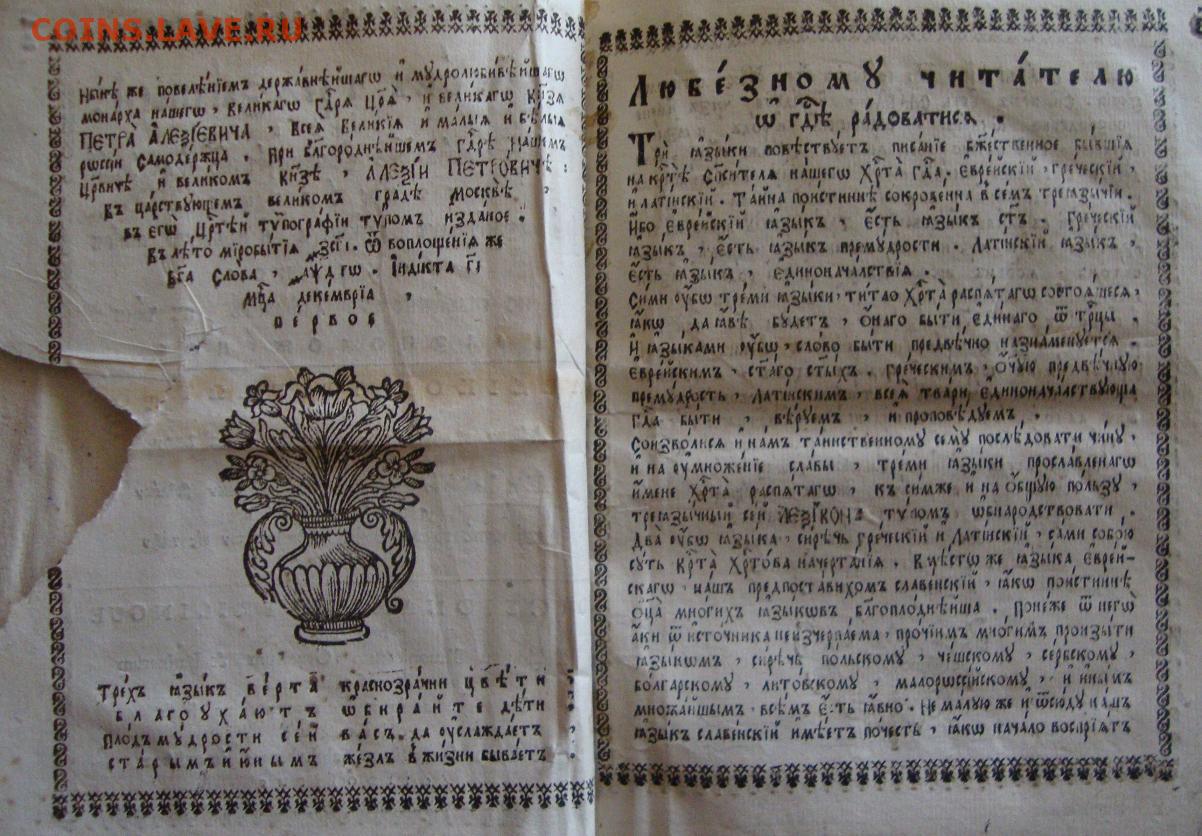 COINS.LAVE.RU
Нн҃ѣ же повелѣ́нїемъ держа́внѣйшагѡ и҆ мꙋдролюби́вѣйшагѡ
мона́рха на́шегѡ, вели́кагѡ гд҇рѧ цр҃ѧ̀, и҆ вели́кагѡ кн҃зѧ
ПЕТРА̀ АЛЕѮІ́ЕВИЧА, всеѧ̀ вели́кїѧ и҆ ма́лыѧ и҆ бѣ́лыѧ
рѡссі́и самоде́ржца. При бл҃горо́днѣйшемъ гд҇рѣ на́шемъ
цр҃вичѣ и҆ вели́комъ кн҃зѣ, АЛЕѮІ́И ПЕТРО́ВИЧѢ:
въ ца́рствꙋющемъ вели́комъ гра́дѣ москвѣ̀,
въ є҆гѡ̀ цр҇тѣй тѷпогра́фїи тѷпомъ и҆́зданое.
Въ лѣ́то міробытїѧ ҂зсг҃і. ѿ воплоще́нїѧ же
бг҃а сло́ва, ҂аѱд҃ гѡ. І҆ндї́кта г҃і
мц҇а деке́мврїа,
пе́рвое
Тре́хъ ꙗ҆зы́къ ве́рта краснозра́чни цвѣ́ти
благоꙋха́ютъ ѡ҆бира́йте дѣ́ти
пло́дъ мꙋ́дрости се́й ва́съ да ᲂу҆слажда́етъ,
ста́рымъ и҆ ю҆́нымъ же́злъ в жи́зни быва́етъ.
Любе́зномꙋ чита́телю
ѡ҆ гд҇ѣ ра́доватисѧ.
Трѝ ꙗ҆зы́ки повѣ́ствꙋетъ писа́нїе бж҃е́ственное бы́вшїѧ
на кр҇тѣ̀ сп҃си́телѧ на́шегѡ хр҇та̀ гд҇а. Є҆вре́йскїй, гре́ческїй,
и҆ лати́нскїй. Та́йна пои́стиннѣ сокрове́нна в се́мъ треѧзы́чїи.
И҆́бо є҆вре́йскїй ꙗ҆зы́къ, є҆́сть ꙗ҆зы́къ ст҃ъ. Гре́ческїй
ꙗ҆зы́къ, є҆́сть ꙗ҆зы́къ премꙋ́дрости. Лати́нскїй ꙗ҆зы́къ,
є҆́сть ꙗ҆зы́къ, є҆динонача́лствїѧ.
Си́ми ᲂу҆́бѡ тре́ми ꙗ҆зы́ки, ти́тло хр҇та̀ распѧ́тагѡ состоꙗ́шесѧ,
ꙗ҆́кѡ да ꙗ҆́вѣ бꙋ́детъ, ѻ҆́наго бы́ти є҆ди́наго ѿ тр҇цы.
И҆ ꙗ҆зы́ками ᲂу҆́бѡ, сло́во бы́ти предвѣ́чно назнаменꙋ́етсѧ.
Є҆вре́йскимъ, ст҃а́го ст҃ы́хъ. Гре́ческимъ, ѻ҆́чꙋю предвѣ́чнꙋю
премꙋ́дрость, лати́нскимъ, всеѧ̀ тва́ри є҆динонача́лствꙋюща
гд҇а бы́ти, вѣ́рꙋемъ, и҆ проповѣ́дꙋемъ.
Соизво́лисѧ и҆ на́мъ та́инственномꙋ семꙋ̀ послѣ́довати чи́нꙋ,
и҆ на ᲂу҆множе́нїе сла́вы, тре́ми ꙗ҆зы́ки просла́вленагѡ
и҆́мене хр҇та̀ распѧ́тагѡ, къ си́мже и҆ на ѻ҆́бщꙋю по́льзꙋ,
треѧзы́чный се́й ЛЕѮІКО́НЪ тѷпомъ ѡ҆бнаро́дствовати.
Два̀ ᲂу҆́бѡ ꙗ҆зы́ка, си́рѣчь гре́ческїй и҆ лати́нскїй, са́ми собо́ю
сꙋ́ть кр҇та̀ хр҇то́ва начерта́нїѧ. Вмѣ́стѡ же ꙗ҆зы́ка є҆вре́й-
скагѡ, на́шъ предпоста́вихомъ славе́нскїй, ꙗ҆́кѡ пои́стиннѣ
ѻ҆ц҃а̀ мно́гихъ ꙗ҆зы́кѡвъ бл҃гопло́днѣйша. Поне́же ѿ негѡ̀
а҆́ки ѿ и҆сто́чника неизчерпа́ема, про́чїимъ мно́гимъ произы́ти
ꙗ҆зы́кѡмъ, си́рѣчь по́льскомꙋ, че́шскомꙋ, се́рбскомꙋ,
болга́рскомꙋ, лито́вскомꙋ, малорѡссі́йскомꙋ, и҆ и҆ны́мъ
мно́жайшымъ, всѣ́мъ є҆́сть ꙗ҆́вно. Не ма́лꙋю же и҆ ѿсю́дꙋ на́шъ
ꙗ҆зы́къ славе́нскїй и҆мѣ́етъ по́честь, ꙗ҆́кѡ нача́ло воспрїѧ́тъ